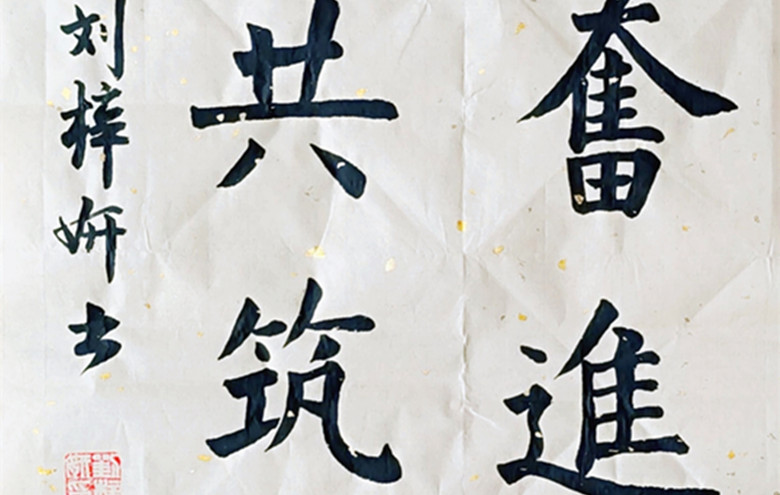 奮進
共筑
刘梓妍书